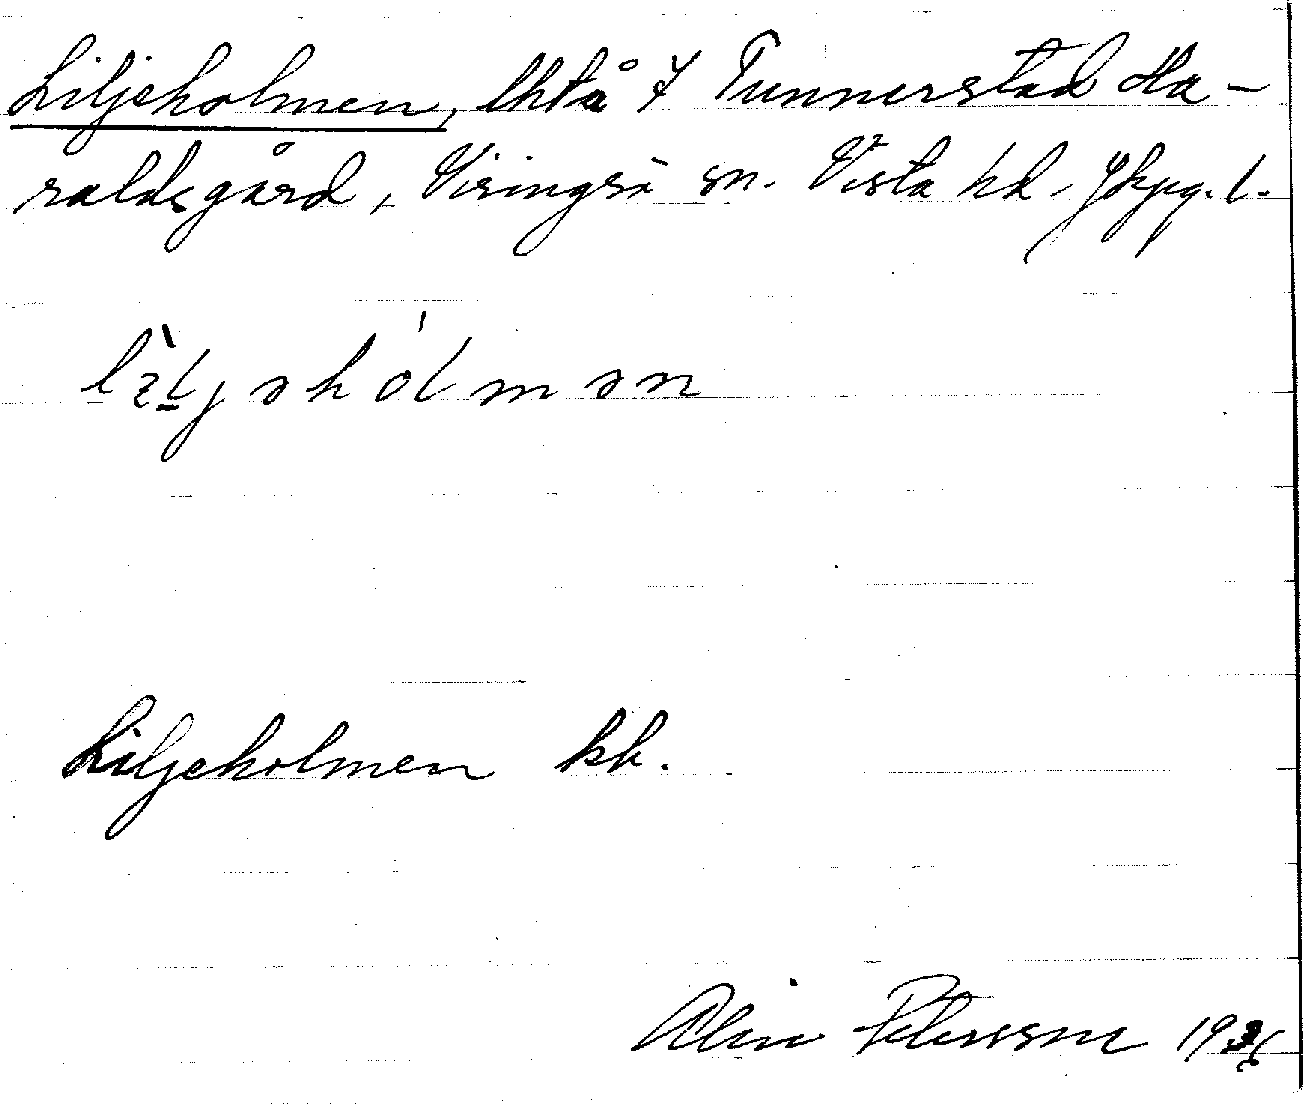 Liljeholmen, lhtå † Tunnerstad Ha-
raldsgård, Visingsö sn. Vista hd. Jkpg. l.
lìljəhólmən
Liljeholmen kk.
Petersson